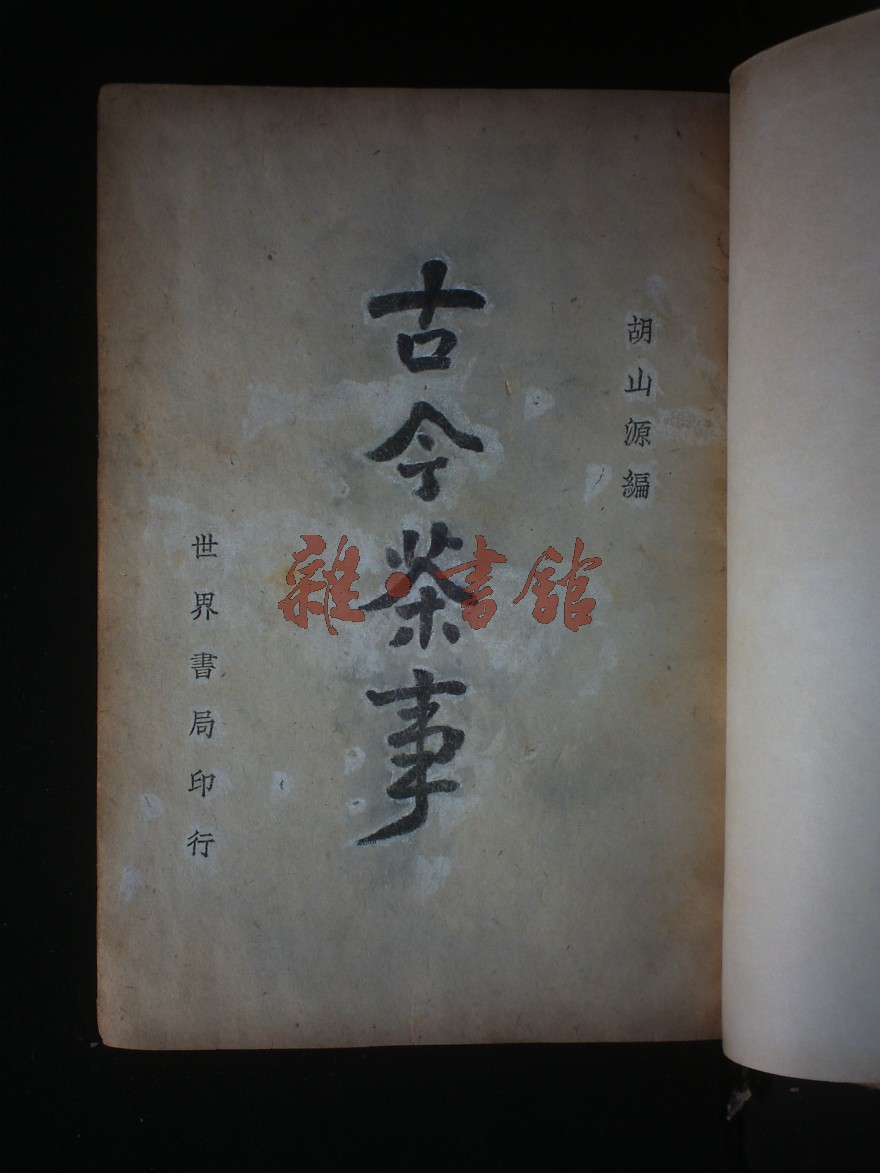 胡山源編
古今茶事
世界書局印行
雜·書館